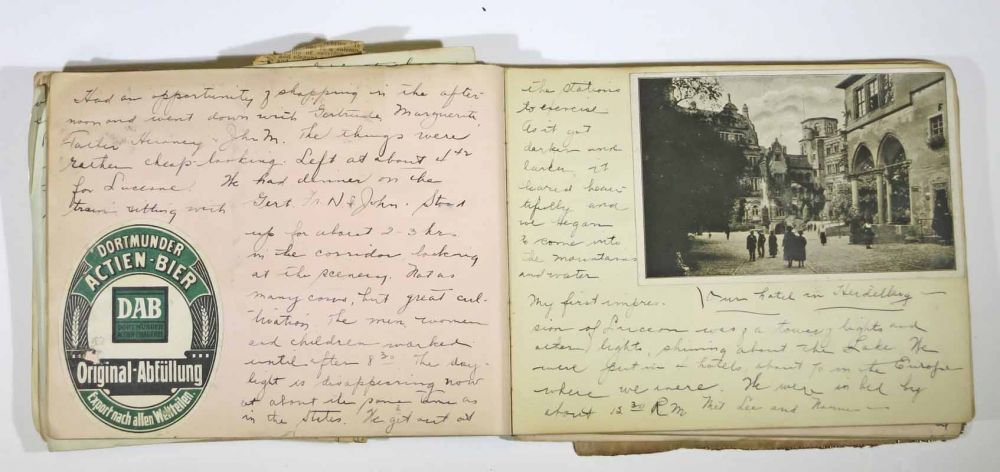 Had an opportunity of shopping in the after-
noon and went down with Gertrude, Marguerite,
John M. The things were
rather cheap-looking. Left at about 4 42
for Lucerne. We had dinner on the
train sitting with Gert. Fr. N & John. Stood
up for about 2-3 hrs
in the corridor looking
at the scenery. Not as
many cows, but great cul-
tivation. The men, women
and children worked
until after 8 30. The day-
light is disappearing now
at about the same time as
in the States. We get out at
DORTMUNDER
ACTIEN-BIER
DAB
DORTMUNDER
ACTIEN-BRAUEREI
Original-Abfüllung
Export nach allen Weltteilen
the stations
to exercise
As it got
darker and
darker, it
beauti-
fully and
we began
to come into
the mountains
and water
Our hotel in Heidelberg
My first impres-
sion of Lucerne was of a tower lights and
lights, shining about the Lake. We
were put in hotels, about 70 in the Europe
where we were. We were in bed by
about P.M. Met Lee and